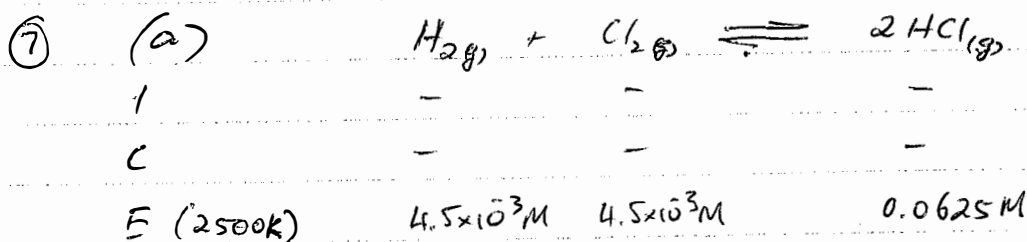 ⑦ (a) H₂(g) + Cl₂(g) ⇌ 2 HCl(g)
I - - -
C - - -
E (2500K) 4.5x10⁻³M 4.5x10⁻³M 0.0625M